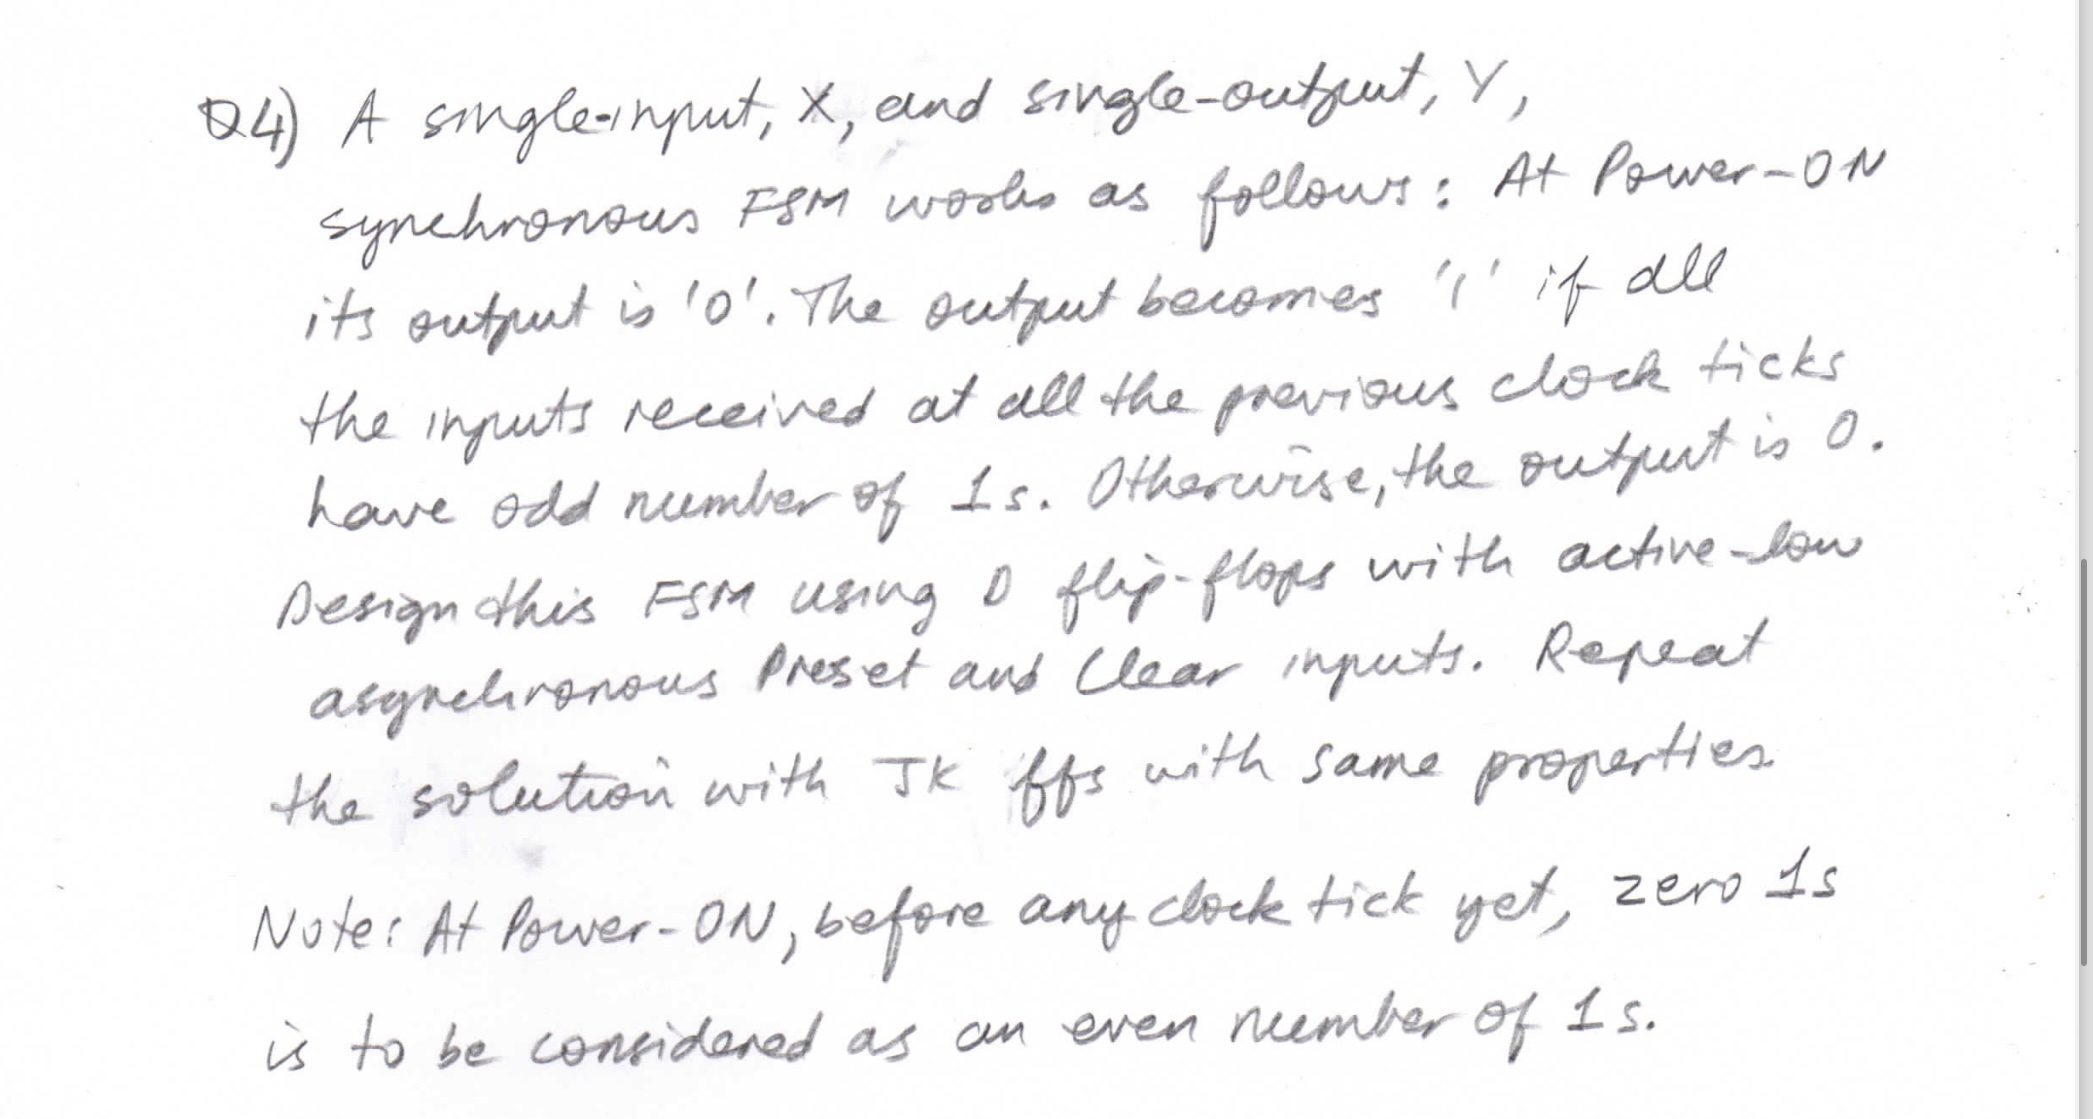 Q4) A single-input, X, and single-output, Y,
synchronous FSM works as follows: At Power-ON
its output is '0'. The output becomes '1' if all
the inputs received at all the previous clock ticks
have odd number of 1s. Otherwise, the output is 0.
Design this FSM using D flip-flops with active-low
asynchronous Preset and Clear inputs. Repeat
the solution with JK ffs with same properties.
Note: At Power-ON, before any clock tick yet, zero 1s
is to be considered as an even number of 1s.